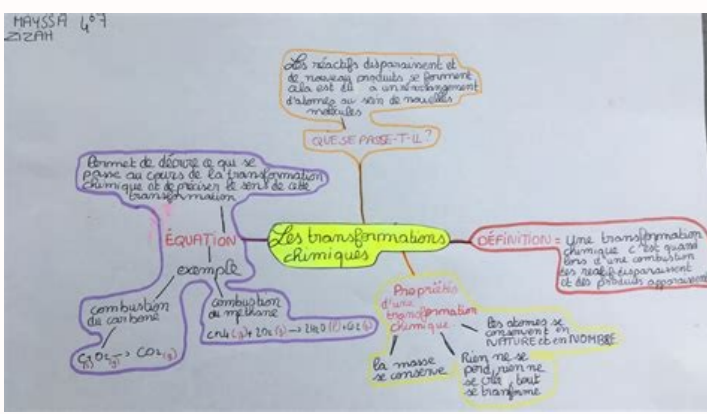 MAYSSA 407
ZIZAH
Les réactifs disparaissent et
de nouveau produits se forment
cela est dû a un réarrangement
d'atomes au sein de nouvelles
molécules
QUE SE PASSE-T-IL ?
Permet de décrire ce qui se
passe au cours de la transformation
chimique et de préciser le sens de cette
transformation
ÉQUATION
exemple
combustion
du carbone
combustion
du méthane
CH4(g)+2O2(g)→2H2O(l)+CO2(g)
O2(g)→CO2(g)
Les transformations
chimiques
DÉFINITION = Une transformation
chimique c'est quand
lors d'une combustion
des réactif disparaissent
et des produits apparaissent
Propriétés
d'une
transformation
chimique
les atomes se
conservent en
NATURE et en NOMBRE
la masse
se conserve
Rien ne se
perd, rien ne
se crée, tout
se transforme